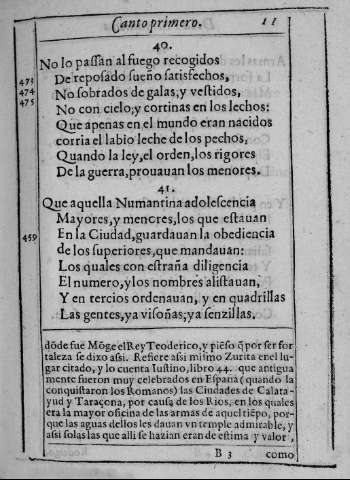 Canto primero. 11
40.
No lo passan al fuego recogidos
473 De reposado sueño satisfechos,
474 No sobrados de galas, y vestidos,
475 No con cielo, y cortinas en los lechos:
Que apenas en el mundo eran nacidos
corria el labio leche de los pechos,
Quando la ley, el orden, los rigores
De la guerra, prouauan los menores.
41.
Que aquella Numantina adolescencia
Mayores, y menores, los que estauan
459 En la Ciudad, guardauan la obediencia
de los superiores, que mandauan:
Los quales con estraña diligencia
El numero, y los nombres alistauan,
Y en tercios ordenauan, y en quadrillas
Las gentes, ya visoñas, ya senzillas.
dōde fue Mōge el Rey Teoderico, y pieso q̃ por ser for
taleza se dixo assi. Refiere assi mismo Zurita en el lu-
gar citado, y lo cuenta Iustino, libro 44. que antigua
mente fueron muy celebrados en España (quando la
conquistaron los Romanos) las Ciudades de Calata-
yud y Taraçona, por causa de los Rios, en los quales
era la mayor oficina de las armas de aquel tiēpo, por-
que las aguas dellos les dauan vn temple admirable, y
assi solas las que alli se hazian eran de estima y valor,
B 3 como